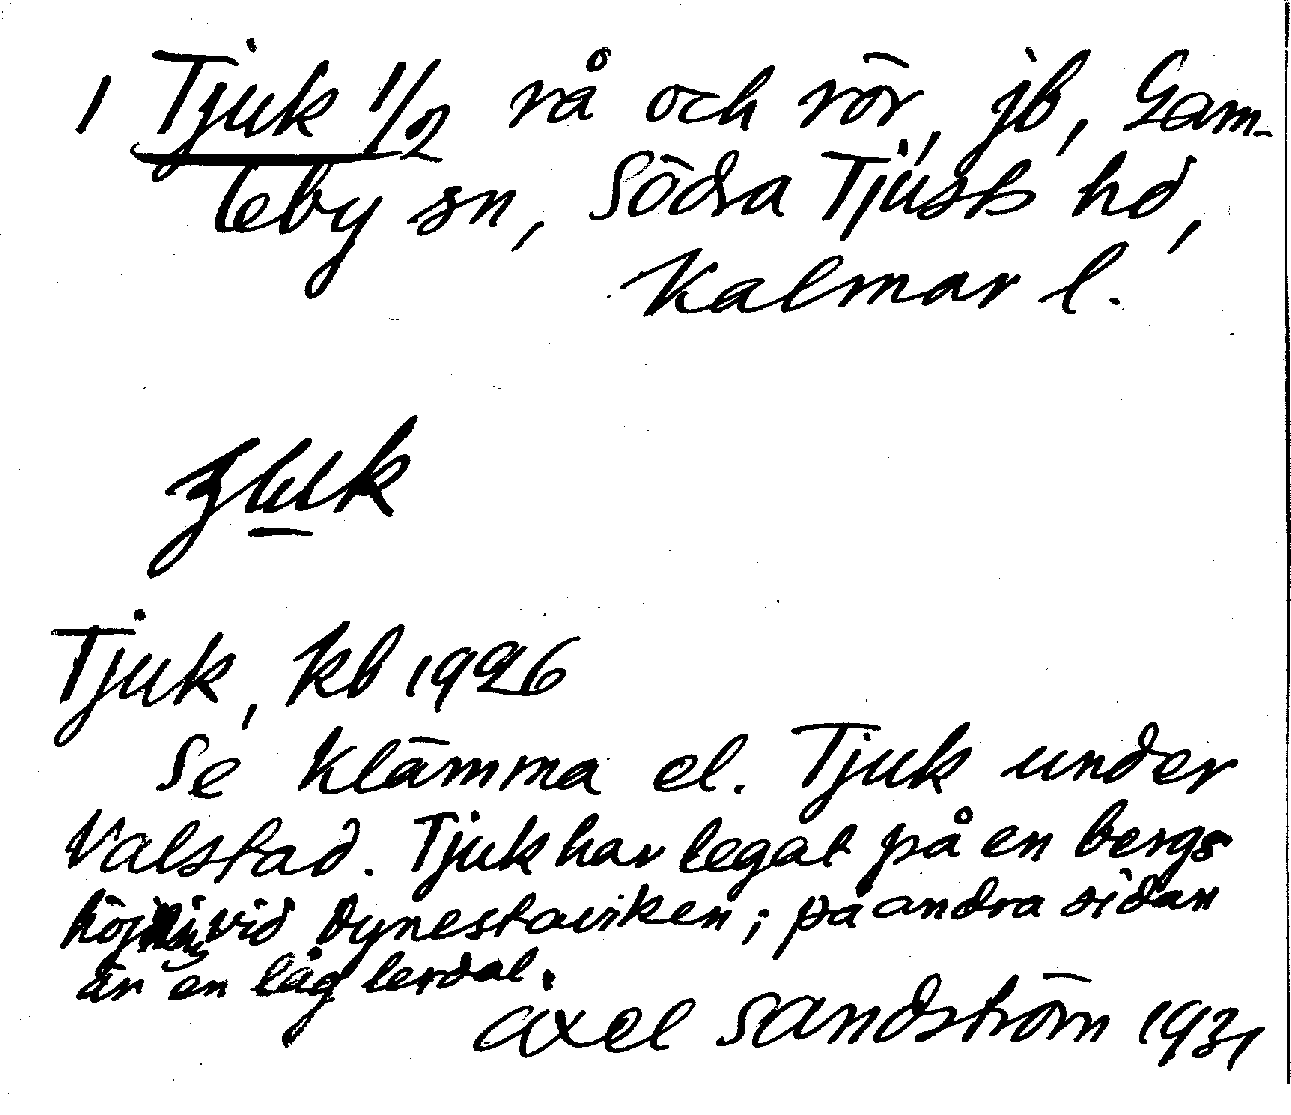 1 Tjuk 1/2 rå och rör, jb, Gam-
leby sn, Södra Tjusts hd,
Kalmar l.
Tjuk, kb 1926
Se Klämma el. Tjuk under
Valstad. Tjuk har legat på en bergs
höjning vid Dynestaviken; på andra sidan
är en låg lerdal.
Axel Sandström 1931